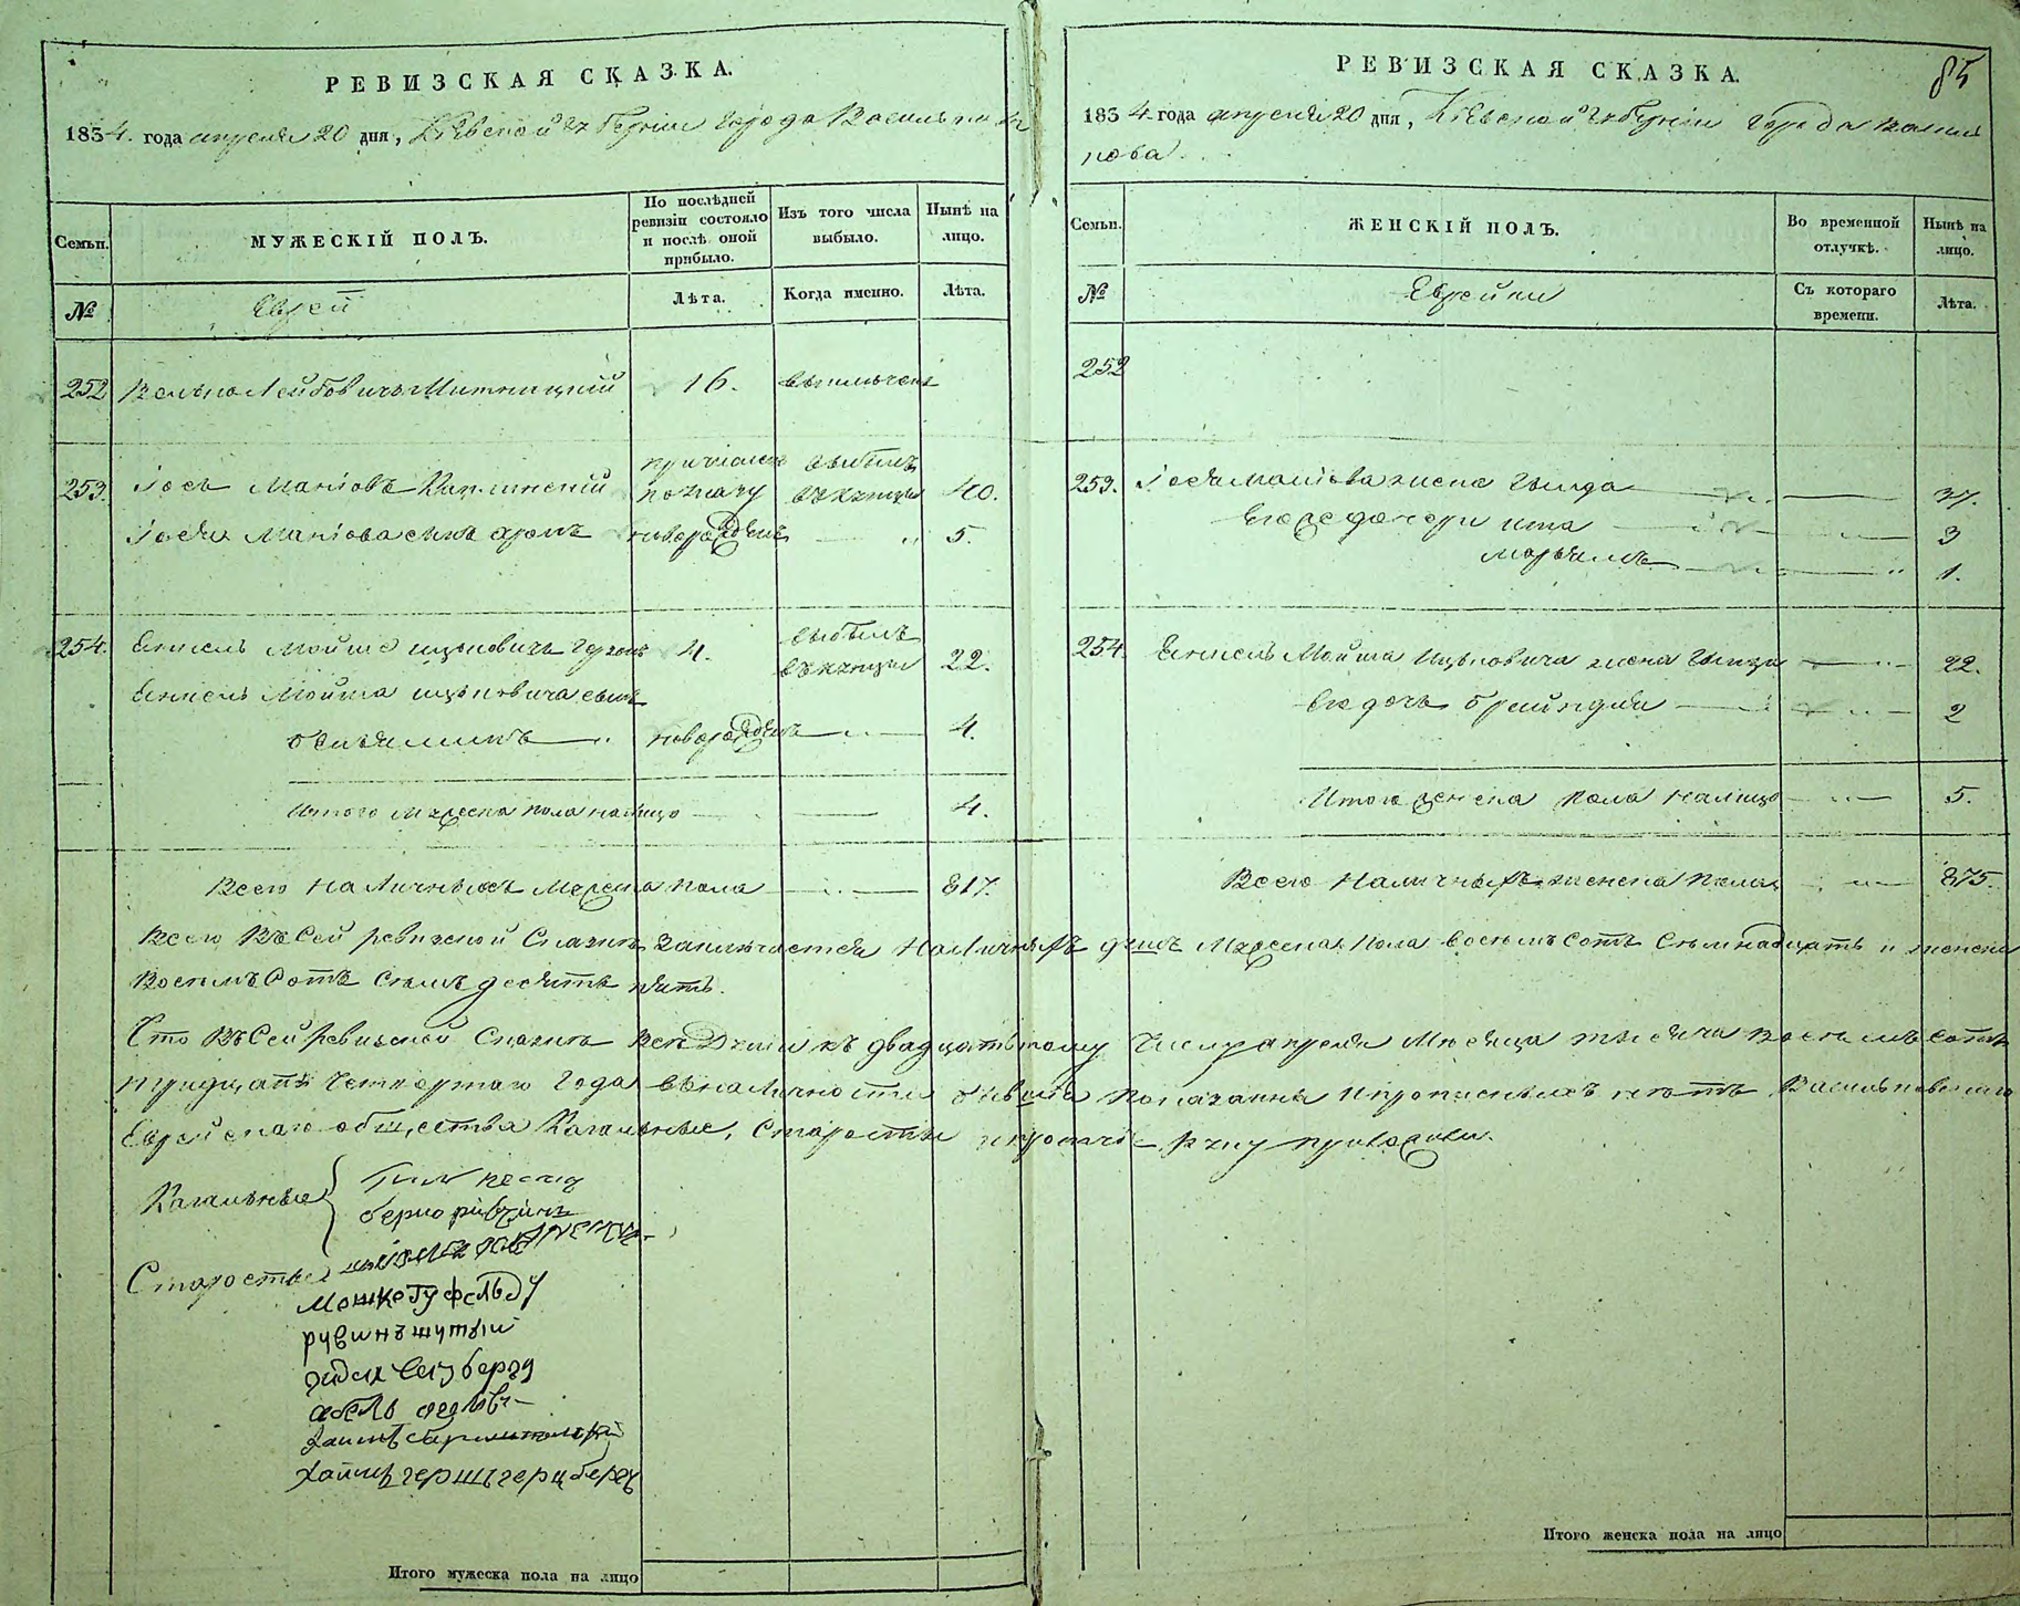 РЕВИЗСКАЯ СКАЗКА.
1834. года апреля 20 дня, Киевской Губернiи города Василькова
Семьи.
МУЖЕСКIЙ ПОЛЪ.
По послѣдней ревизiи состояло и послѣ оной прибыло.
Изъ того числа выбыло.
Нынѣ на лицо.
№
Еврей
Лѣта.
Когда именно.
Лѣта.
252 Велько Лейбовичъ Митницкiй 16. выключенъ
253. Iось Манiовъ причисленъ выбылъ
по указу въ купцы 40.
Iося Манiова сынъ новорожденъ 5.
254. Енкель Мойше Ицковичъ 4. выбылъ въ купцы 22.
Енкель Мойша Ицковича сынъ
Беньяминъ новорожденъ 4.
Итого мужеска пола налицо 4.
Всего наличныхъ мужеска пола 817.
РЕВИЗСКАЯ СКАЗКА.
85
1834 года апреля 20 дня, Киевской Губернiи города Василь
кова.
Семьи.
ЖЕНСКIЙ ПОЛЪ.
Во временной отлучкѣ.
Нынѣ на лицо.
№
Еврейки
Съ котораго времени.
Лѣта.
252
253. Iося Манiова жена Гольда 37.
Его же дочери Ита 3
Марьямъ 1.
254. Енкель Мойша Ицковича жена 22.
Его дочь Брейндля 2
Итого женска пола налицо 5.
Всего наличныхъ женска пола 875.
Всего въ сей ревизской сказкѣ заключается наличныхъ душъ мужеска пола восемь сотъ семнадцать и женска
восемь сотъ семъ десятъ пять.
Что въ сей ревизской сказкѣ все души къ двадцатому числу апреля месяца тысяча восемь сотъ
тридцать четвертаго года въ наличности бывшiе показаны и прописныхъ нетъ Васильковскаго
Еврейскаго общества Кагальные, Старосты и прочiе руку приложили.
Кагальные
берко рибчинъ
Старосты
мошко Гуфельду
рувинъ шутый
абель
Хаимъ
Хаимъ гершъ герцбергъ
Итого мужеска пола на лицо
Итого женска пола на лицо